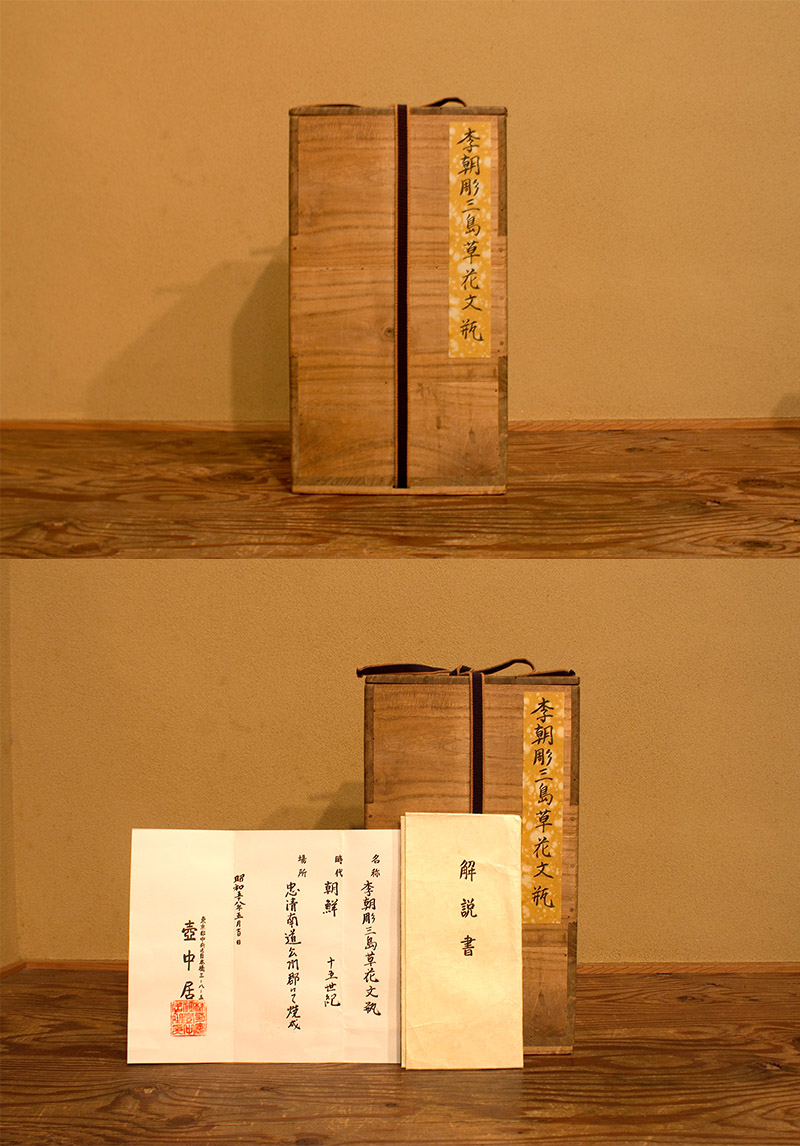 李朝彫三島草花文瓶
李朝彫三島草花文瓶
解説書
名称 李朝彫三島草花文瓶
時代 朝鮮 十五世紀
場所 忠清南道公州郡にて焼成
昭和五十八年五月
東京都中央区日本橋三ノ八ノ五
壺中居